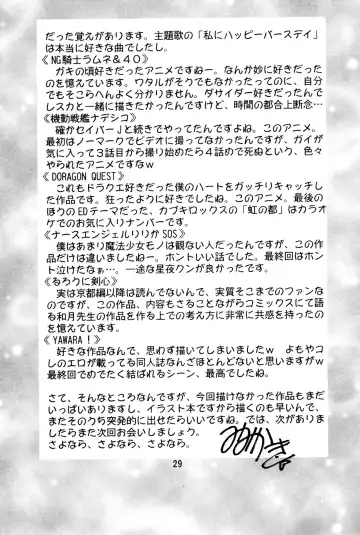 だった覚えがあります。主題歌の「私にハッピーバースデイ」
は本当に好きな曲でしたし。
《NG騎士ラムネ&40》
ガキの頃好きだったアニメですねー。なんか妙に好きだった
のを憶えています。ワタルがそクでもなかったってのに、自分
でもそこらへんよく分かりません。ダサイダー好きだったんで
レスカと一緒に描きたかったんですけど、時間の都合上断念…
《機動戦艦ナデシコ》
確かセイバーJと続きでやってたんですよね。このアニメ。
最初はノーマークでビデオに撮ってなかったんですが、ガイが
気に入って3話目から撮り始めたら4話めで死ぬという、色々
やられたアニメですなw
《DORAGON QUEST》
これもドラクエ好きだった僕のハートをガッチリキャッチし
た作品です。狂ったように好きでしたね。このアニメ。最後の
ほうのEDテーマだった、カブキロックスの「虹の都」はカラオ
ケでのお気に入りナンバーです。
《ナースエンジェルりりかSOS》
僕はあまり魔法少女モノは観ない人だったんですが、この作
品だけは違いましたねー。ホントいい話でした。最終回はホン
ト泣けたなぁ…。一途な星夜クンが良かったです。
《るろうに剣心》
実は京都編以降は読んでないんで、実質そこまでのファンな
のですが、この作品、内容もさることながらコミックスにて語
る和月先生の作品を作る上での考え方に非常に共感を持ったの
を憶えています。
《YAWARA!》
好きな作品なんで、思わず描いてしまいましたw よもやコ
レのエロが載ってる同人誌なんざほとんどないと思いますがw
最終回でめでたく結ばれるシーン、最高でしたね。
さて、そんなところなんですが、今回描けなかった作品もまだ
いっぱいありますし、イラスト本ですから描くのも早いんで、
またそのうち突発的に出せたらいいですね。では、次がありま
したらまた次回お会いしましょう。
さよなら、さよなら、さよなら。
29